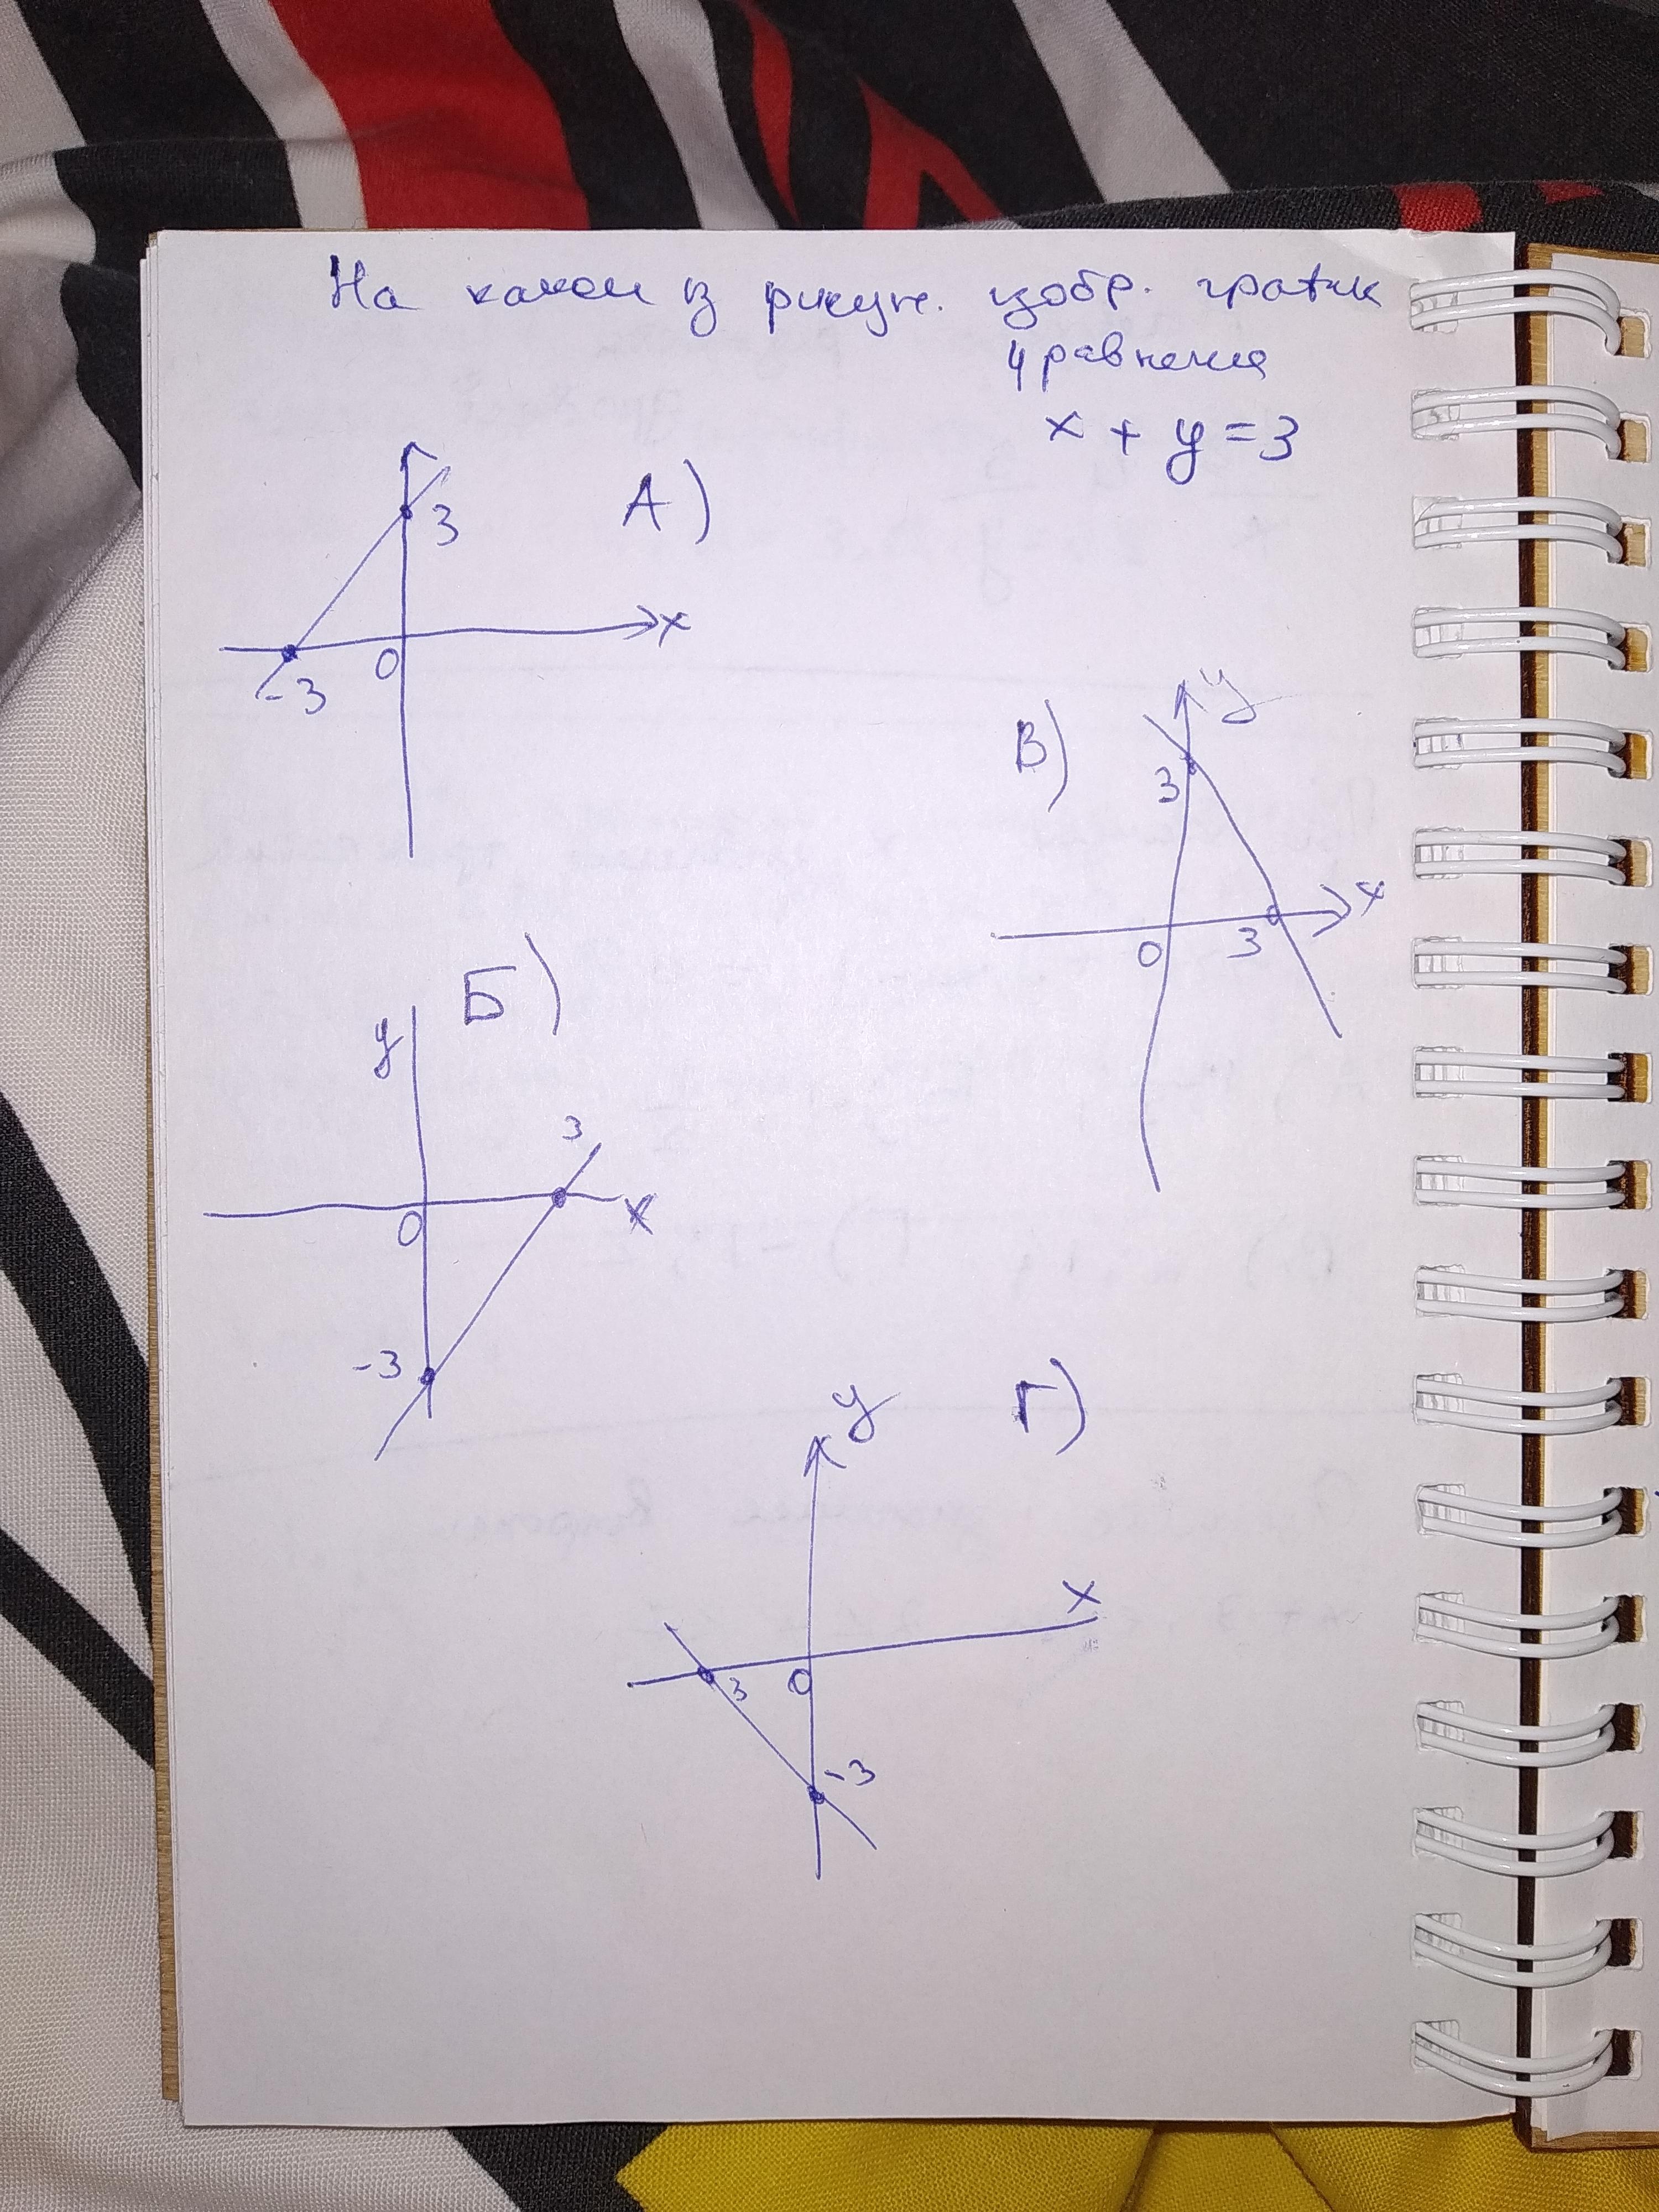 На каком из рисун. изобр. график
уравнения
x + y = 3
А)
3
x
0
-3
В)
y
3
x
0
3
Б)
y
3
0
x
-3
Г)
y
x
3
0
-3